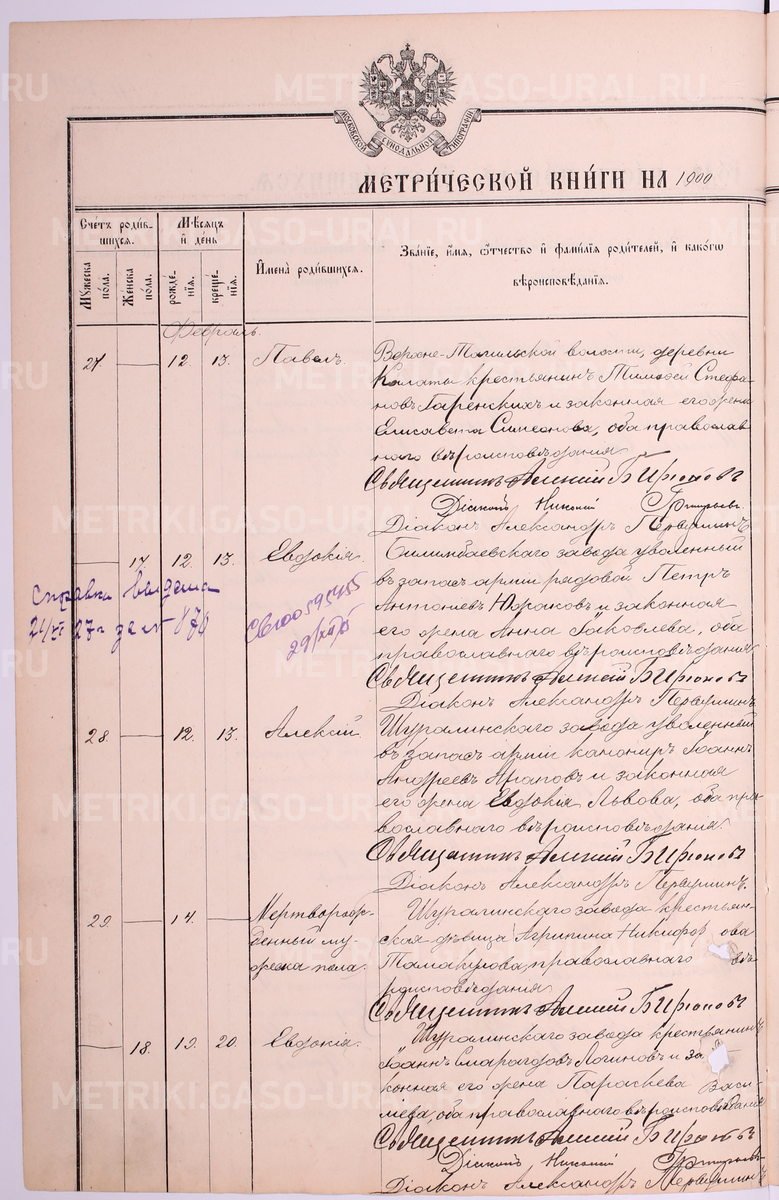 МОСКОВСКОЙ СѴНОДАЛЬНОЙ ТИПОГРАФІИ
МЕТРИ́ЧЕСКОЙ КНИ́ГИ НА 1900
Сче́тъ роди́в-
шихся.
Мѣ́сяцъ
и҆ де́нь
Мꙋ́жеска
по́ла.
Же́нска
по́ла.
рожде́-
нїѧ.
креще́-
нїѧ.
И҆мена̀ роди́вшихся.
Зва́нїе, и҆́мя, ѻ҆́тчество и҆ фами́лїя роди́телей, и҆ како́гѡ
вѣроисповѣ́данїя.
Февраль.
27. — 12. 13. Павелъ.
Верхне-Тагильской волости, деревни
Калаты крестьянинъ Тимофей Стефа-
новъ Гаренскихъ и законная его жена
Елисавета Симеонова, оба православ-
наго вѣроисповѣданія
Священникъ Алексій Бирюковъ
Діаконъ Николай Григорьевъ
Діаконъ Александръ Первушинъ
— 17. 12. 13. Евдокія.
Билимбаевскаго завода уволенный
въ запасъ арміи рядовой Петръ
Антоніевъ и законная
его жена Анна Іаковлева, оба
православнаго вѣроисповѣданія
Священникъ Алексій Бирюковъ
Діаконъ Александръ Первушинъ
Справка выдана
27 г. дело 876
28. — 12. 13. Алексій.
Шуралинскаго завода уволенный
въ запасъ арміи канониръ Іоаннъ
Андреевъ Араповъ и законная
его жена Евдокія Львова, оба пра-
вославнаго вѣроисповѣданія.
Священникъ Алексій Бирюковъ
Діаконъ Александръ Первушинъ.
29. — 14. — Мертворож-
денный му-
жеска пола.
Шуралинскаго завода крестьян-
ская дѣвица Агрипина Никифорова
Тамакулова, православнаго вѣ-
роисповѣданія
Священникъ Алексій Бирюковъ
— 18. 19. 20. Евдокія.
Шуралинскаго завода крестьянинъ
Іоаннъ Смарагдовъ Логиновъ и за
конная его жена Параскева Васи-
ліева, оба православнаго вѣроисповѣданія
Священникъ Алексій Бирюковъ
Діаконъ Николай Григорьевъ
Діаконъ Александръ Первушинъ
METRIKI.GASO-URAL.RU